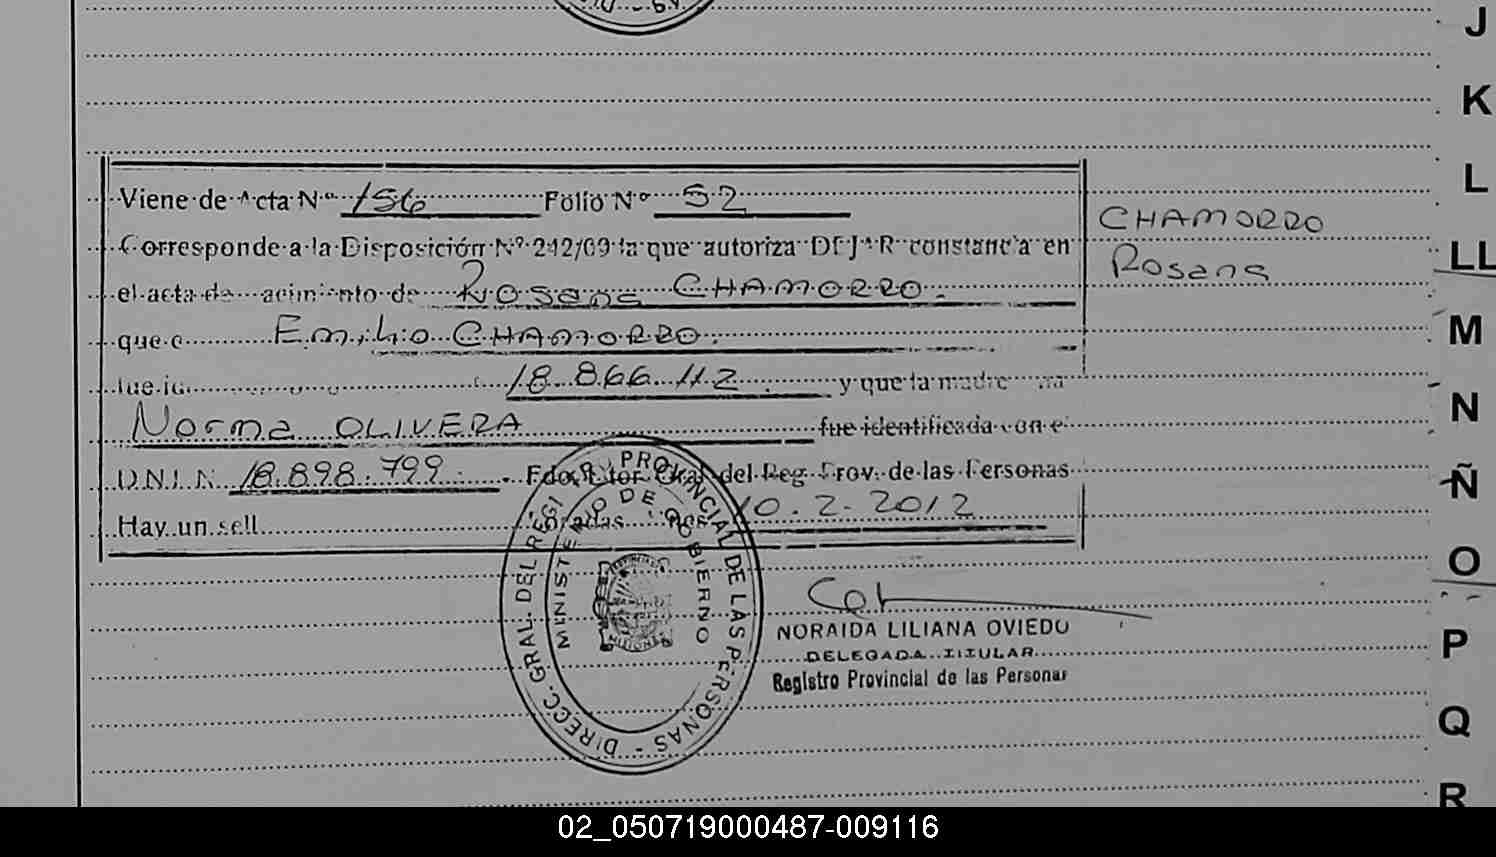 J
K
L
LL
M
N
Ñ
O
P
Q
R
Viene de Acta Nº 156 Folio Nº 52
Corresponde a la Disposición Nº 242/09 la que autoriza DEJAR constancia en
el acta de nacimiento de Rosana CHAMORRO.
que e Emilio CHAMORRO.
fue 18.866.112. y que la madre
Norma OLIVERA fue identificada con e
D.N.I. N 18.898.799. Fdo. Dtor Gral. del Reg. Prov. de las Personas
Hay un sell 10.2.2012
CHAMORRO
Rosana
DIRECC. GRAL. DEL REGI PROVINCIAL DE LAS PERSONAS -
MINISTERIO DE GOBIERNO
NORAIDA LILIANA OVIEDO
DELEGADA TITULAR
Registro Provincial de las Personas
02_050719000487-009116